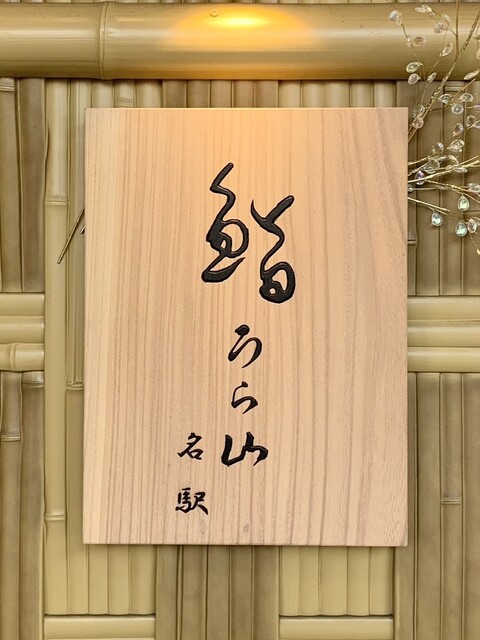 鮨
うら山
名駅